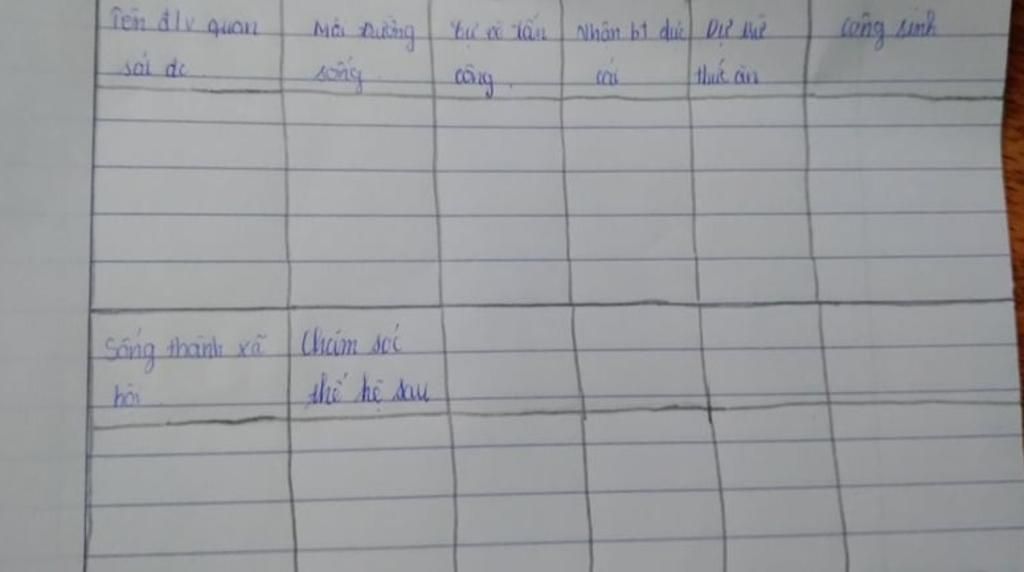 Tên đ/v quan
sát đc
Môi trường
sống
tự vệ tấn
công
Nhận bt đực
cái
Dự trữ
thức ăn
cộng sinh
Sống thành xã
hội
Chăm sóc
thế hệ sau